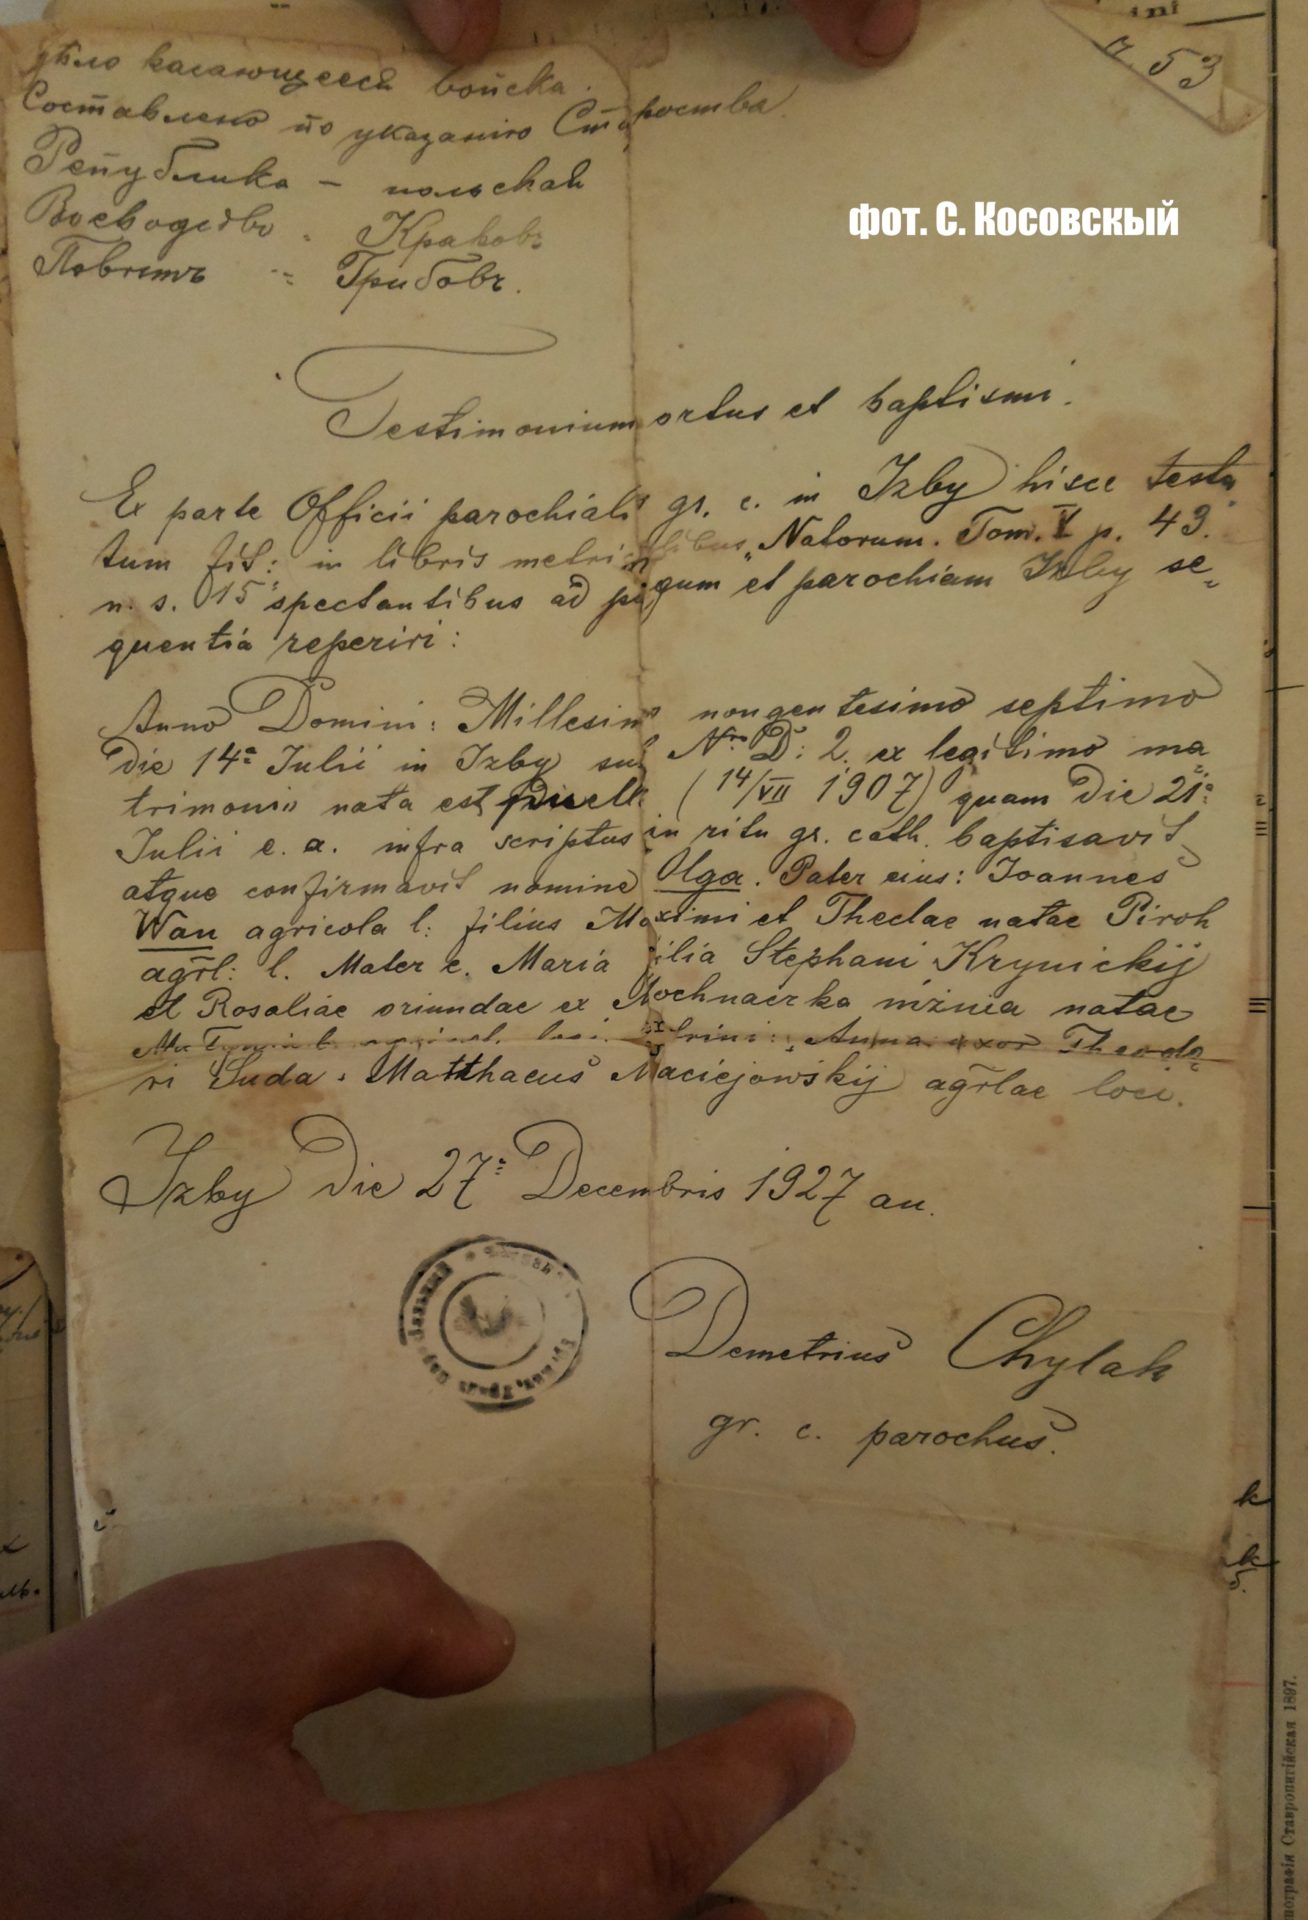 дѣло касающееся войска.
Составлено по указанію Староства
Република - польская
Воеводство - Краковъ
Повятъ -" Грибовъ.
n. 53
фот. С. Косовскый
Testimonium ortus et baptismi.
Ex parte Officii parochialis gr. c. in Izby hisce testa
tum fit: in libris metricalibus „Natorum. Tom. V p. 43.
n. s. 15" spectantibus ad pagum et parochiam Izby se-
quentia reperiri:
Anno Domini: Millesimo nongentesimo septimo
die 14ª Iulii in Izby sub Nro D: 2. ex legitimo ma
trimonio nata est puella (14/VII 1907) quam die 21ª
Iulii e. a. infra scriptus in ritu gr. cath. baptisavit
atque confirmavit nomine Olga. Pater eius: Joannes
Wan agricola l: filius Maximi et Theclae natae Piroh
agrl: l. Mater e. Maria filia Stephani Krynickij
et Rosaliae oriundae ex Mochnaczka niżnia natae
Anna uxor Theodo-
ri Duda. Matthaeus Maciejowskij agrlae loci.
Izby die 27ª Decembris 1927 an.
Demetrius Chylak
gr. c. parochus.
k
k
Ставропигійская 1897.